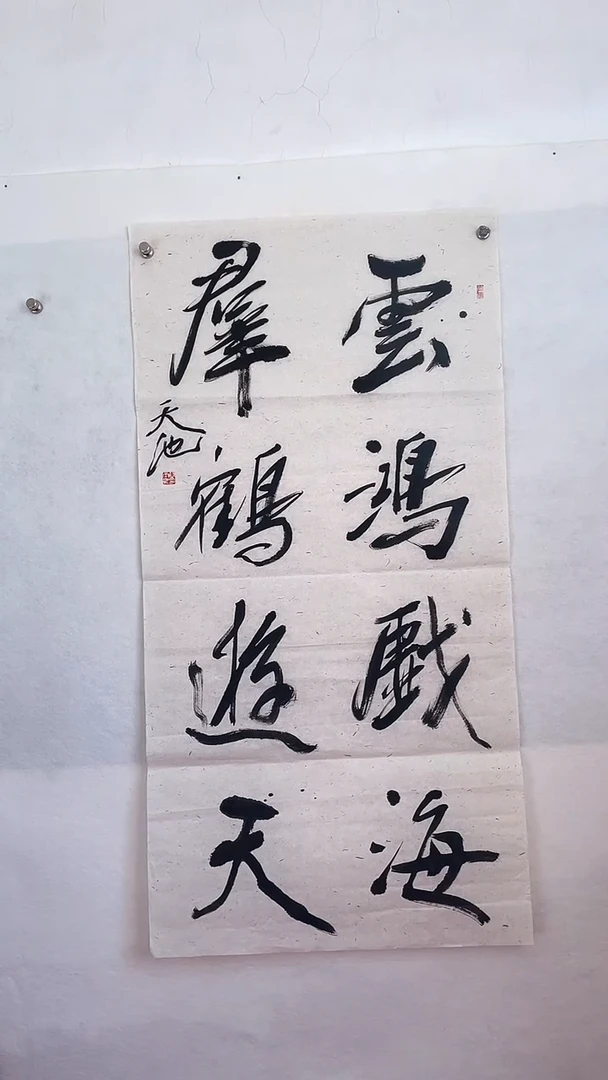 雲鴻戲海
羣鶴遊天
天池